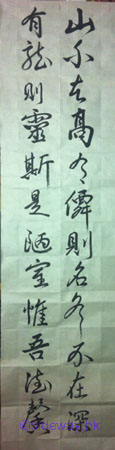 山不在高有僊則名水不在深
有龍則靈斯是陋室惟吾德馨